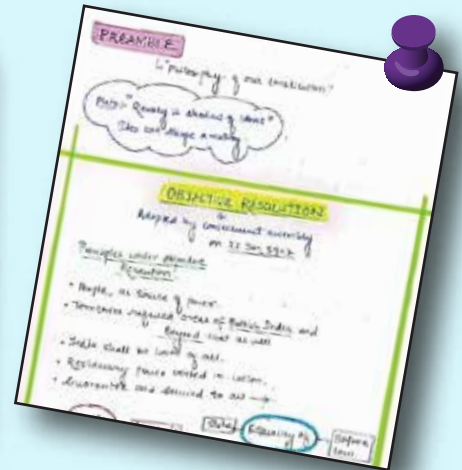 PREAMBLE
philosophy of our constitution
Plato: "Reality is shadow of ideas"
Idea can shape a reality
OBJECTIVE RESOLUTION
Adopted by constituent assembly
on 22 Jan, 1947
Principles under objective
Resolution:
• People, as source of power.
• Territories areas of British India and
Beyond that as well
• India shall be of all.
• Residuary power vested in union.
• Guarantee and secured to all →
Equality of
Before
law